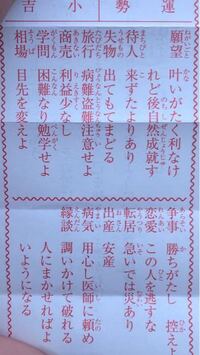 運勢 小吉
願望 叶いがたく利なけ
れど後自然成就す
待人 来ずたよりあり
失物 出てもまどる
旅行 病難盗難注意せよ
商売 利益少なし
学問 困難なり勉学せよ
相場 目先を変えよ
争事 勝ちがたし 控えよ
恋愛 この人を逃すな
転居 急いでは災あり
出産 安産
病気 用心し医師に頼め
縁談 調いかけて破れる
人にまかせればよ
いようになる